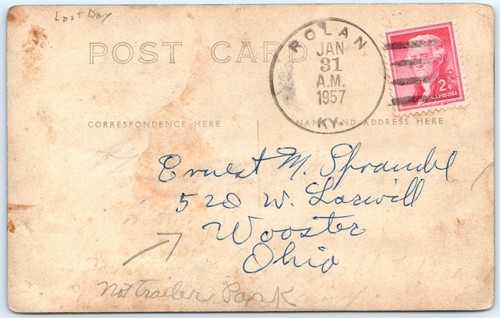 Last Day
POST CARD
ROLAN
JAN
31
A.M.
1957
KY.
2¢
CORRESPONDENCE HERE
NAME AND ADDRESS HERE
Ernest M. Sprandel
520 W.
Wooster
Ohio
Not Trailer Park